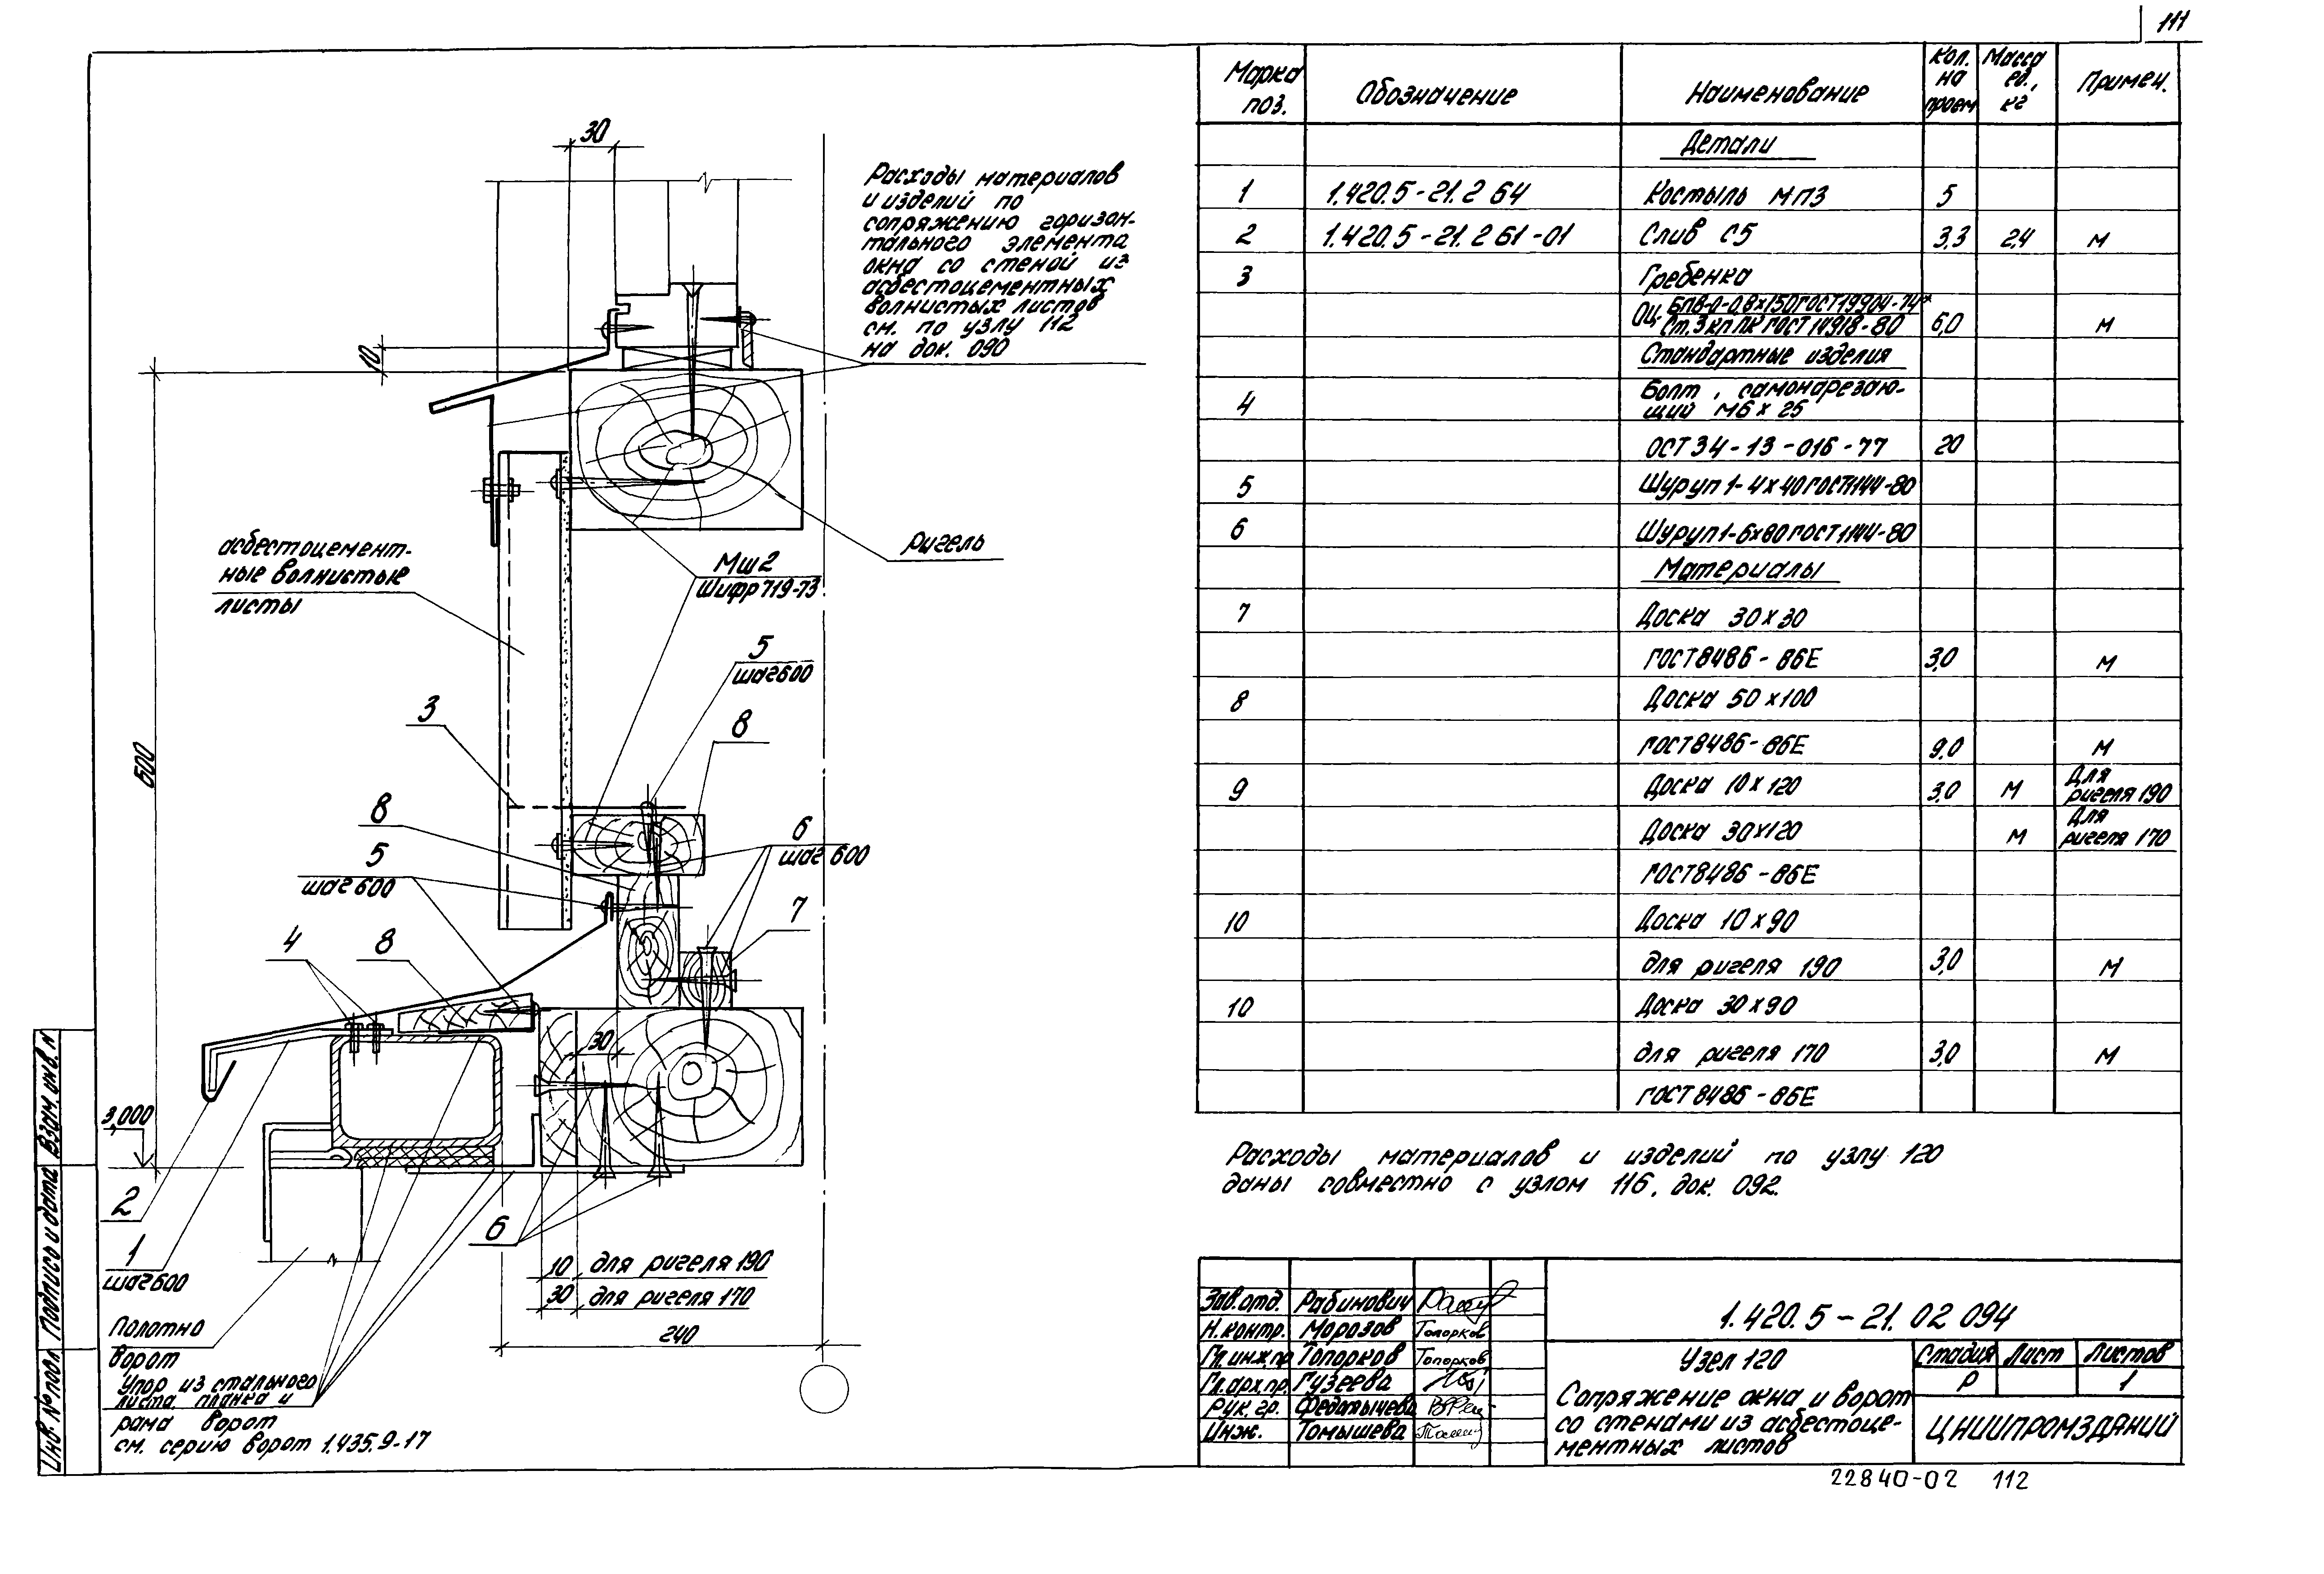 111
30
Расходы материалов
и изделий по
сопряжению горизон-
тального элемента
окна со стеной из
асбестоцементных
волнистых листов
см. по узлу 112
на док. 090
10
600
асбестоцемент-
ные волнистые
листы
ригель
Мш2
Шифр 719-73
5
шаг 600
3
8
8
6
шаг 600
5
шаг 600
7
4
8
30
3,000
2
1
шаг 600
6
10 для ригеля 190
30 для ригеля 170
240
Полотно
ворот
Упор из стального
листа, планка и
рама ворот
см. серию ворот 1.435.9-17
Взам. инв. №
Подпись и дата
Инв. № подл
Марка поз. Обозначение Наименование Кол. на проем Масса ед., кг Примеч.
Детали
1 1.420.5-21.2 64 Костыль МП3 5
2 1.420.5-21.2 61-01 Слив С5 3,3 2,4 м
3 Гребенка
Оц. БПВ-О-0,8х150 ГОСТ 19904-74*
Ст.3 кп ПК ГОСТ 14918-80 6,0 м
Стандартные изделия
4 Болт, самонарезаю-
щий М6х25
ОСТ 34-13-016-77 20
5 Шуруп 1-4х40 ГОСТ 1144-80
6 Шуруп 1-6х80 ГОСТ 1144-80
Материалы
7 Доска 30х30
ГОСТ 8486-86Е 3,0 м
8 Доска 50х100
ГОСТ 8486-86Е 9,0 м
9 Доска 10х120 3,0 м Для ригеля 190
Доска 30х120 м Для ригеля 170
ГОСТ 8486-86Е
10 Доска 10х90
для ригеля 190 3,0 м
10 Доска 30х90
для ригеля 170 3,0 м
ГОСТ 8486-86Е
Расходы материалов и изделий по узлу 120
даны совместно с узлом 116, док. 092.
Зав. отд. Рабинович
Н. контр. Морозов Топорков
Гл. инж. пр Топорков Топорков
Гл. арх. пр. Гузеева
Рук. гр. Федотычева
Инж. Томышева
1.420.5-21. 02 094
Узел 120
Сопряжение окна и ворот
со стенами из асбестоце-
ментных листов
Стадия Лист Листов
Р 1
ЦНИИПРОМЗДАНИЙ
22840-02 112